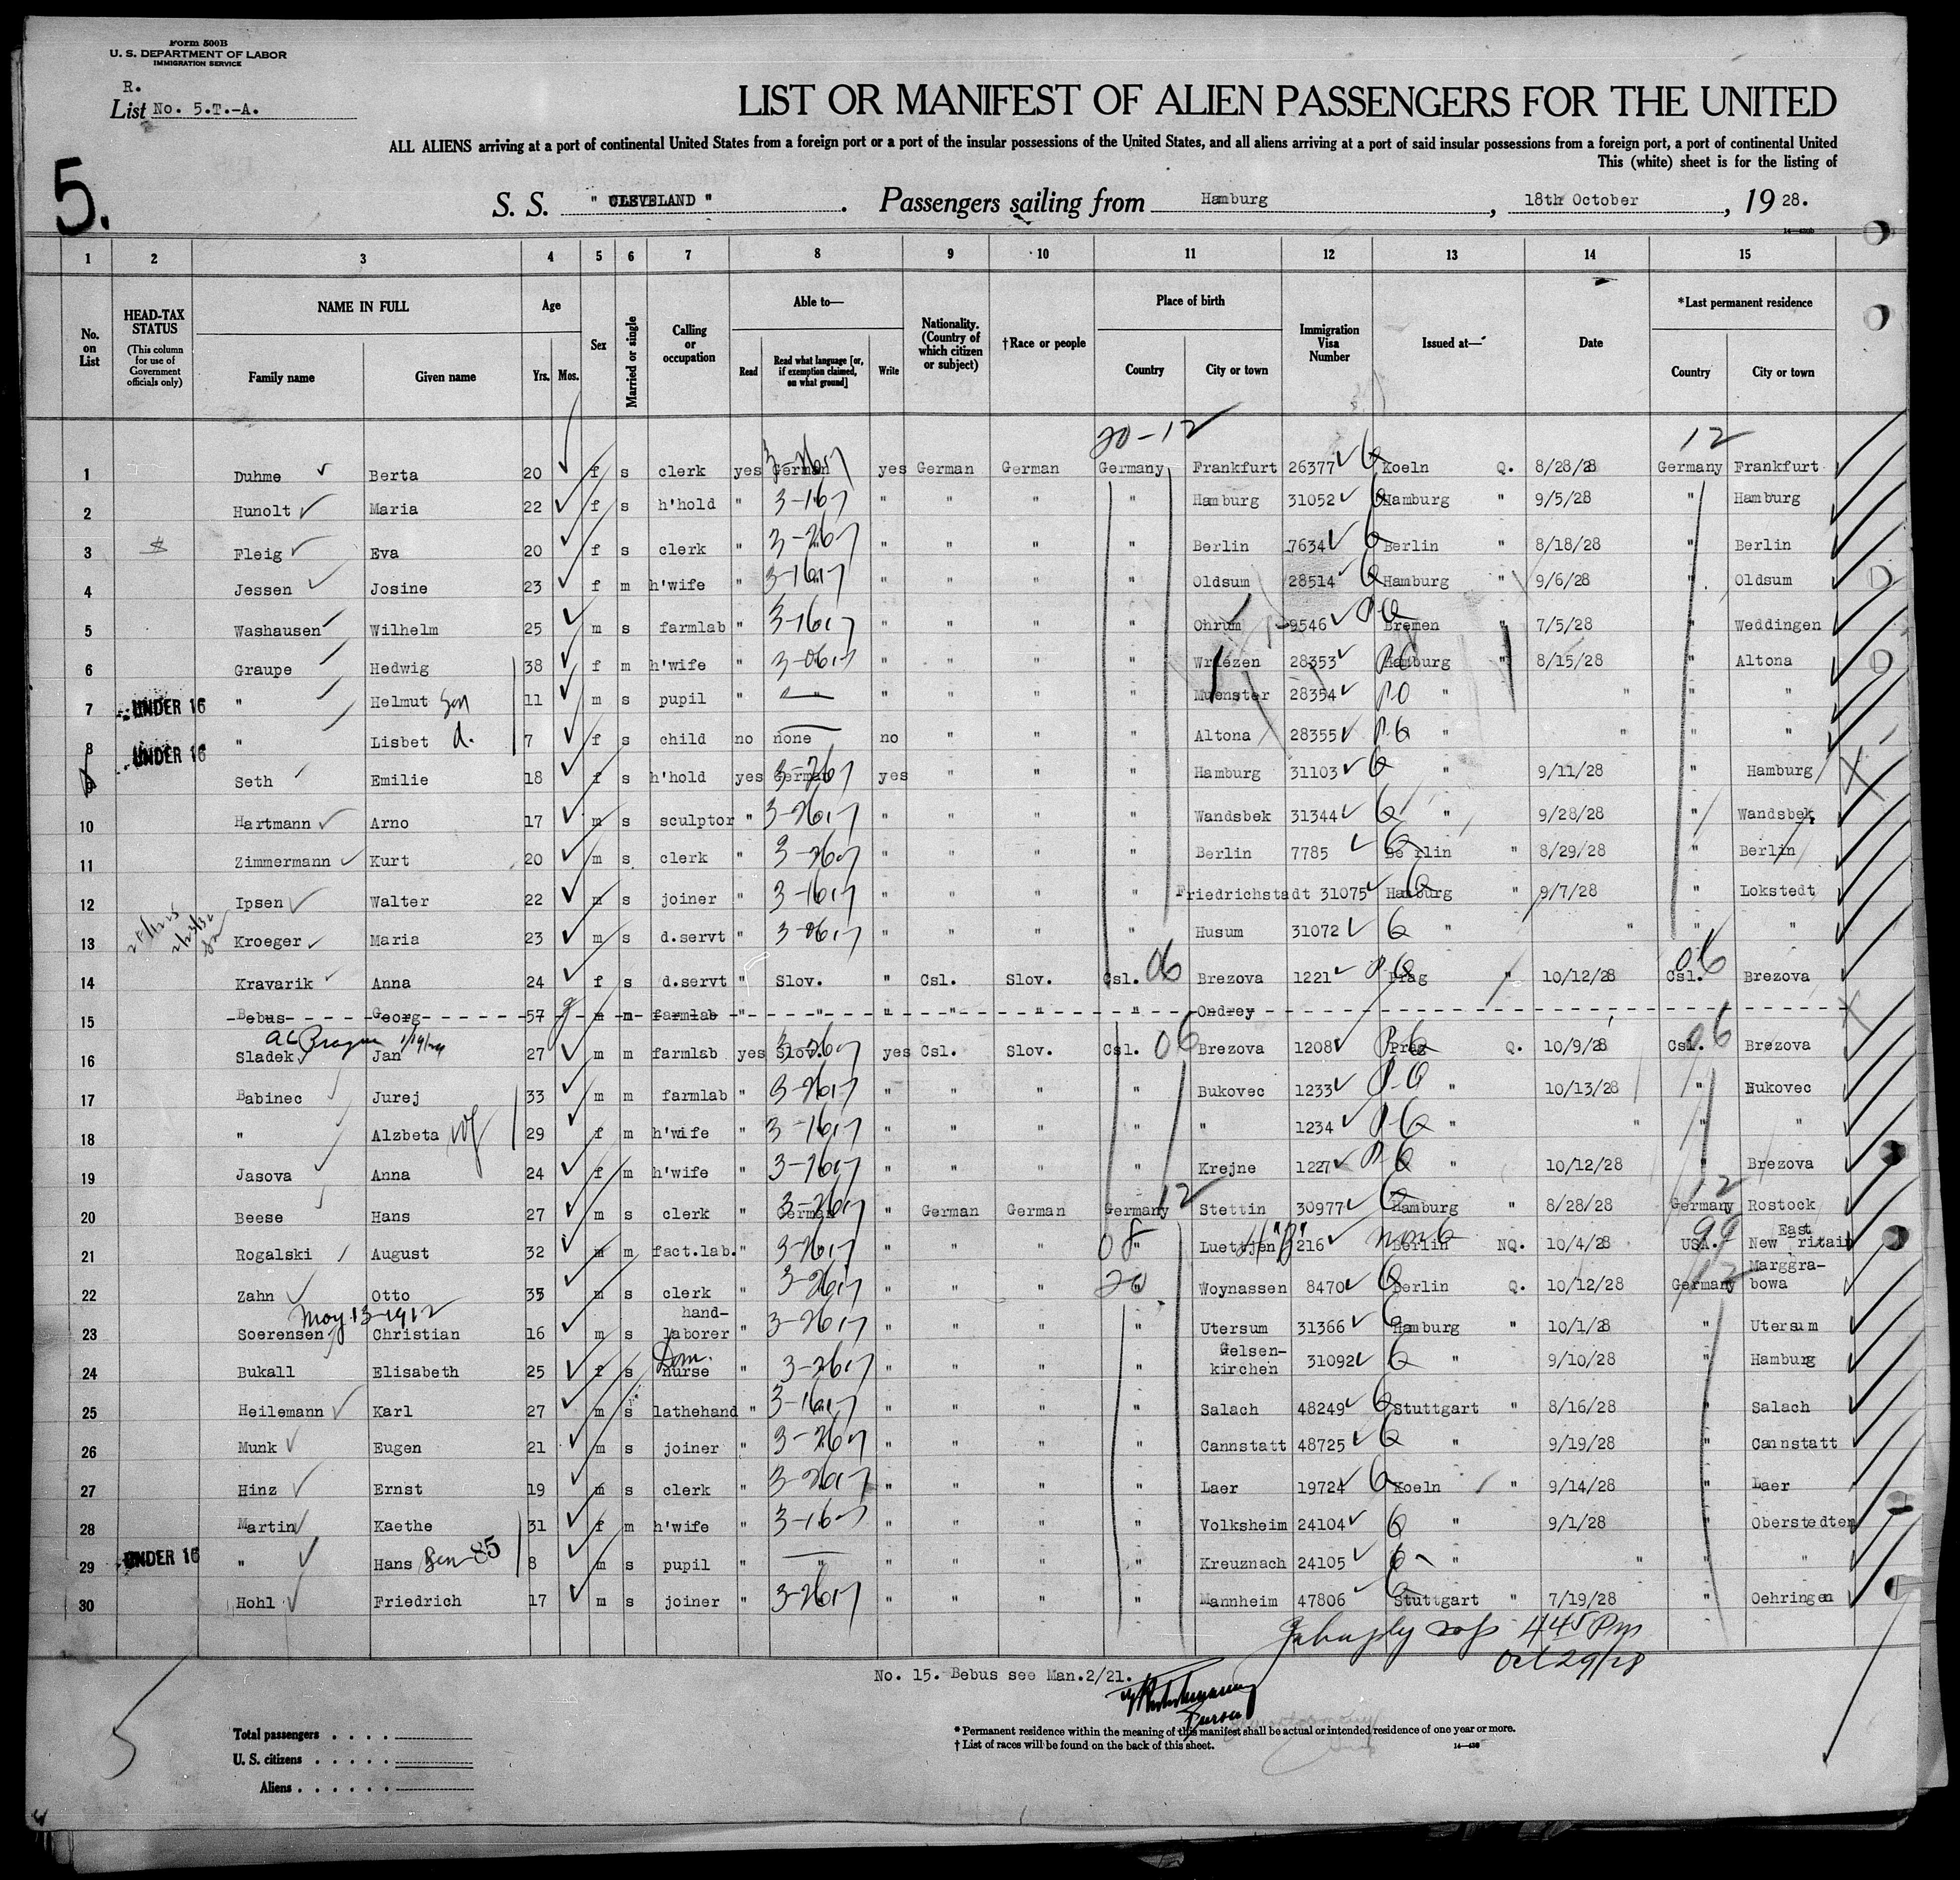 Form 500B
U. S. DEPARTMENT OF LABOR
IMMIGRATION SERVICE
R.
List No. 5.T.-A.
LIST OR MANIFEST OF ALIEN PASSENGERS FOR THE UNITED
ALL ALIENS arriving at a port of continental United States from a foreign port or a port of the insular possessions of the United States, and all aliens arriving at a port of said insular possessions from a foreign port, a port of continental United
This (white) sheet is for the listing of
5.
S. S. " CLEVELAND " . Passengers sailing from Hamburg , 18th October , 19 28.
1 2 3 4 5 6 7 8 9 10 11 12 13 14 15
No. on List
HEAD-TAX STATUS (This column for use of Government officials only)
NAME IN FULL Family name Given name
Age Yrs. Mos.
Sex
Married or single
Calling or occupation
Able to— Read Read what language [or, if exemption claimed, on what ground] Write
Nationality. (Country of which citizen or subject)
†Race or people
Place of birth Country City or town
Immigration Visa Number
Issued at—
Date
*Last permanent residence Country City or town
20-12 12
1 Duhme Berta 20 f s clerk yes German yes German German Germany Frankfurt 26377 Koeln Q. 8/28/28 Germany Frankfurt
2 Hunolt Maria 22 f s h'hold " 3-1617 " " " " Hamburg 31052 Hamburg " 9/5/28 " Hamburg
3 Fleig Eva 20 f s clerk " 3-2617 " " " " Berlin 7634 Berlin " 8/18/28 " Berlin
4 Jessen Josine 23 f m h'wife " 3-1617 " " " " Oldsum 28514 Hamburg " 9/6/28 " Oldsum
5 Washausen Wilhelm 25 m s farmlab " 3-1617 " " " " Ohrum 9546 Bremen " 7/5/28 " Weddingen
6 Graupe Hedwig 38 f m h'wife " 3-0617 " " " " Wriezen 28353 Hamburg " 8/15/28 " Altona
7 UNDER 16 " Helmut Son 11 m s pupil " " " " " " Muenster 28354 " " " "
8 UNDER 16 " Lisbet d. 7 f s child no none no " " " Altona 28355 " " " "
9 Seth Emilie 18 f s h'hold yes German yes " " " Hamburg 31103 9/11/28 " Hamburg
10 Hartmann Arno 17 m s sculptor " 3-2617 " " " " Wandsbek 31344 " 9/28/28 " Wandsbek
11 Zimmermann Kurt 20 m s clerk " 3-2617 " " " " Berlin 7785 Berlin " 8/29/28 " Berlin
12 Ipsen Walter 22 m s joiner " 3-1617 " " " " Friedrichstadt 31075 Hamburg " 9/7/28 " Lokstedt
13 Kroeger Maria 23 m s d.servt " 3-0617 " " " " Husum 31072 " " " "
14 Kravarik Anna 24 f s d.servt " Slov. " Csl. Slov. Csl. 06 Brezova 1221 Prag " 10/12/28 Csl. 06 Brezova
15 Bebus Georg 57 m m farmlab " " " " " " Ondrey
16 Sladek Jan 27 m m farmlab yes Slov. yes Csl. Slov. Csl. 06 Brezova 1208 Prag Q. 10/9/28 Csl. 06 Brezova
17 Babinec Jurej 33 m m farmlab " 3-2617 " " " " Bukovec 1233 " 10/13/28 " Bukovec
18 " Alzbeta wf 29 f m h'wife " 3-1617 " " " " " 1234 " " " "
19 Jasova Anna 24 f m h'wife " 3-1617 " " " " Krejne 1227 " 10/12/28 " Brezova
20 Beese Hans 27 m s clerk " German " German German Germany 12 Stettin 30977 Hamburg " 8/28/28 Germany 12 Rostock
21 Rogalski August 32 m m fact.lab. " 3-2617 " " " 08 " 216 Berlin NQ. 10/4/28 USA. 99 East New Britain
22 Zahn Otto 35 m s clerk " 3-2617 " " " 20 Woynassen 8470 Berlin Q. 10/12/28 Germany 12 Marggra-bowa
May 13-1912
23 Soerensen Christian 16 m s hand-laborer " 3-2617 " " " " Utersum 31366 Hamburg " 10/1/28 " Utersum
24 Bukall Elisabeth 25 f s Dom. nurse " 3-2617 " " " " Gelsen-kirchen 31092 " 9/10/28 " Hamburg
25 Heilemann Karl 27 m s lathehand " 3-1617 " " " " Salach 48249 Stuttgart " 8/16/28 " Salach
26 Munk Eugen 21 m s joiner " 3-2617 " " " " Cannstatt 48725 " 9/19/28 " Cannstatt
27 Hinz Ernst 19 m s clerk " 3-2617 " " " " Laer 19724 Koeln " 9/14/28 " Laer
28 Martin Kaethe 31 f m h'wife " 3-1617 " " " " Volksheim 24104 " 9/1/28 " Oberstedten
29 UNDER 16 " Hans Son 85 8 m s pupil " " " " " " Kreuznach 24105 " " " "
30 Hohl Friedrich 17 m s joiner " 3-2617 " " " " Mannheim 47806 Stuttgart " 7/19/28 " Oehringen
445 Pm
Oct 29/28
No. 15. Bebus see Man.2/21.
5
Total passengers
U. S. citizens
Aliens
* Permanent residence within the meaning of this manifest shall be actual or intended residence of one year or more.
† List of races will be found on the back of this sheet.
14—430